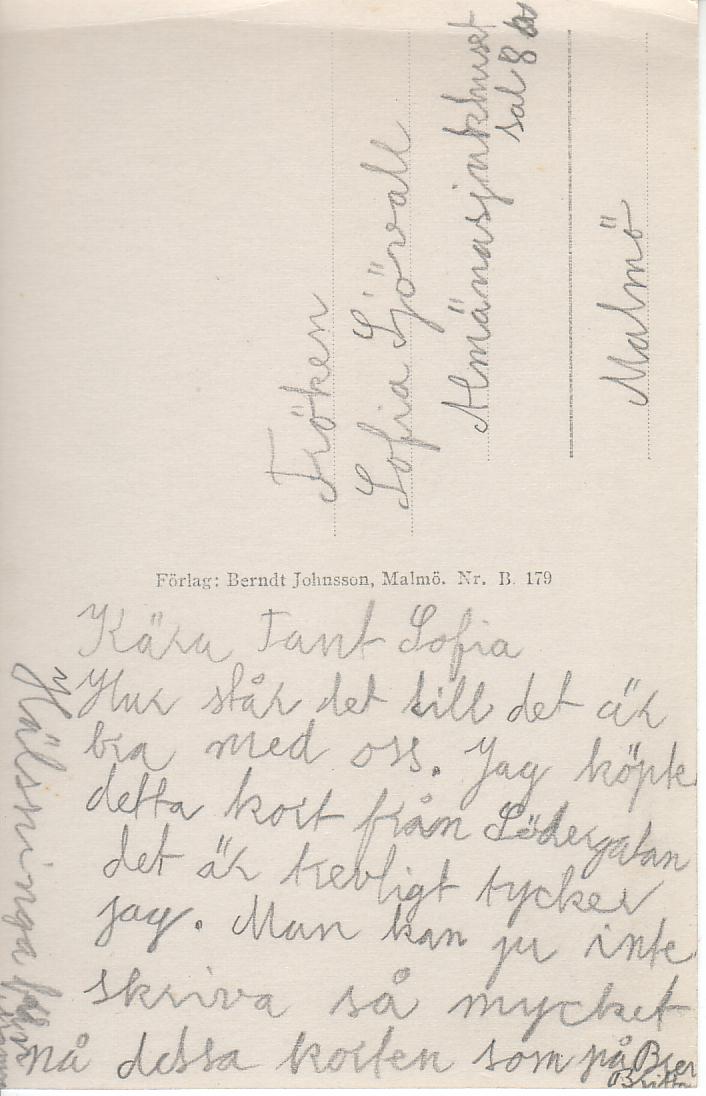 Fröken
Sofia Sjövall
Almänasjukhuset
sal 8
Malmö
Förlag: Berndt Johnsson, Malmö. Nr. B. 179
Kära Tant Sofia
Hur står det till det är
bra med oss. Jag köpte
detta kort från Södergatan
det är trevligt tycker
jag. Man kan ju inte
skriva så mycket
på dessa korten som på
Britta
Hälsninga från